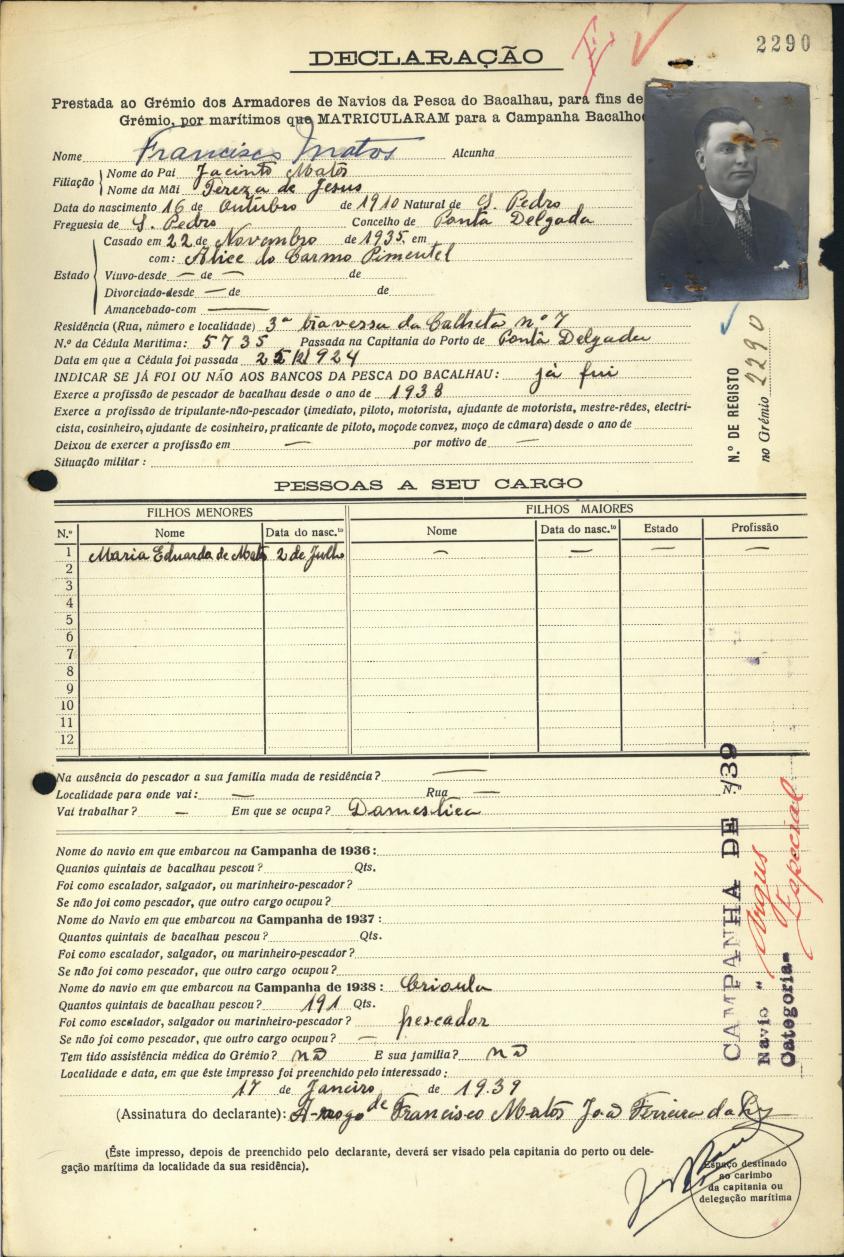 2290
DECLARAÇÃO
Prestada ao Grémio dos Armadores de Navios da Pesca do Bacalhau, para fins de
Grémio, por marítimos que MATRICULARAM para a Campanha Bacalhoe
Nome Francisco Matos Alcunha
Filiação Nome do Pai Jacinto Matos
Nome da Mãi Tereza de Jesus
Data do nascimento 16 de Outubro de 1910 Natural de S. Pedro
Freguesia de S. Pedro Concelho de Ponta Delgada
Estado Casado em 22 de Novembro de 1935 em
com: Alice do Carmo Pimentel
Viuvo-desde — de — de
Divorciado-desde — de de
Amancebado-com —
Residência (Rua, número e localidade) 3ª travessa da Calheta nº 7
N.º da Cédula Marítima: 5735 Passada na Capitania do Porto de Ponta Delgada
Data em que a Cédula foi passada 924
INDICAR SE JÁ FOI OU NÃO AOS BANCOS DA PESCA DO BACALHAU: já fui
Exerce a profissão de pescador de bacalhau desde o ano de 1938
Exerce a profissão de tripulante-não-pescador (imediato, piloto, motorista, ajudante de motorista, mestre-rêdes, electri-
cista, cosinheiro, ajudante de cosinheiro, praticante de piloto, moço de convez, moço de câmara) desde o ano de
Deixou de exercer a profissão em — por motivo de —
Situação militar:
N.º DE REGISTO
no Grémio 2290
PESSOAS A SEU CARGO
FILHOS MENORES FILHOS MAIORES
N.º Nome Data do nasc.to Nome Data do nasc.to Estado Profissão
1 Maria Eduarda de Matos 2 de Julho — — — —
2
3
4
5
6
7
8
9
10
11
12
Na ausência do pescador a sua família muda de residência? —
Localidade para onde vai: — Rua —
Vai trabalhar? — Em que se ocupa? Damestica
Nome do navio em que embarcou na Campanha de 1936:
Quantos quintais de bacalhau pescou? Qts.
Foi como escalador, salgador, ou marinheiro-pescador?
Se não foi como pescador, que outro cargo ocupou?
Nome do Navio em que embarcou na Campanha de 1937:
Quantos quintais de bacalhau pescou? Qts.
Foi como escalador, salgador, ou marinheiro-pescador?
Se não foi como pescador, que outro cargo ocupou?
Nome do navio em que embarcou na Campanha de 1938: Crioula
Quantos quintais de bacalhau pescou? 191 Qts.
Foi como escalador, salgador ou marinheiro-pescador? pescador
Se não foi como pescador, que outro cargo ocupou? —
Tem tido assistência médica do Grémio? não E sua família? não
Localidade e data, em que êste impresso foi preenchido pelo interessado:
17 de Janeiro de 1939
(Assinatura do declarante): A-rogo de Francisco Matos João Ferreira da Luz
(Êste impresso, depois de preenchido pelo declarante, deverá ser visado pela capitania do porto ou dele-
gação marítima da localidade da sua residência).
Espaço destinado
ao carimbo
da capitania ou
delegação marítima
CAMPANHA DE 39
Navio " Argus
Categoria- Especial